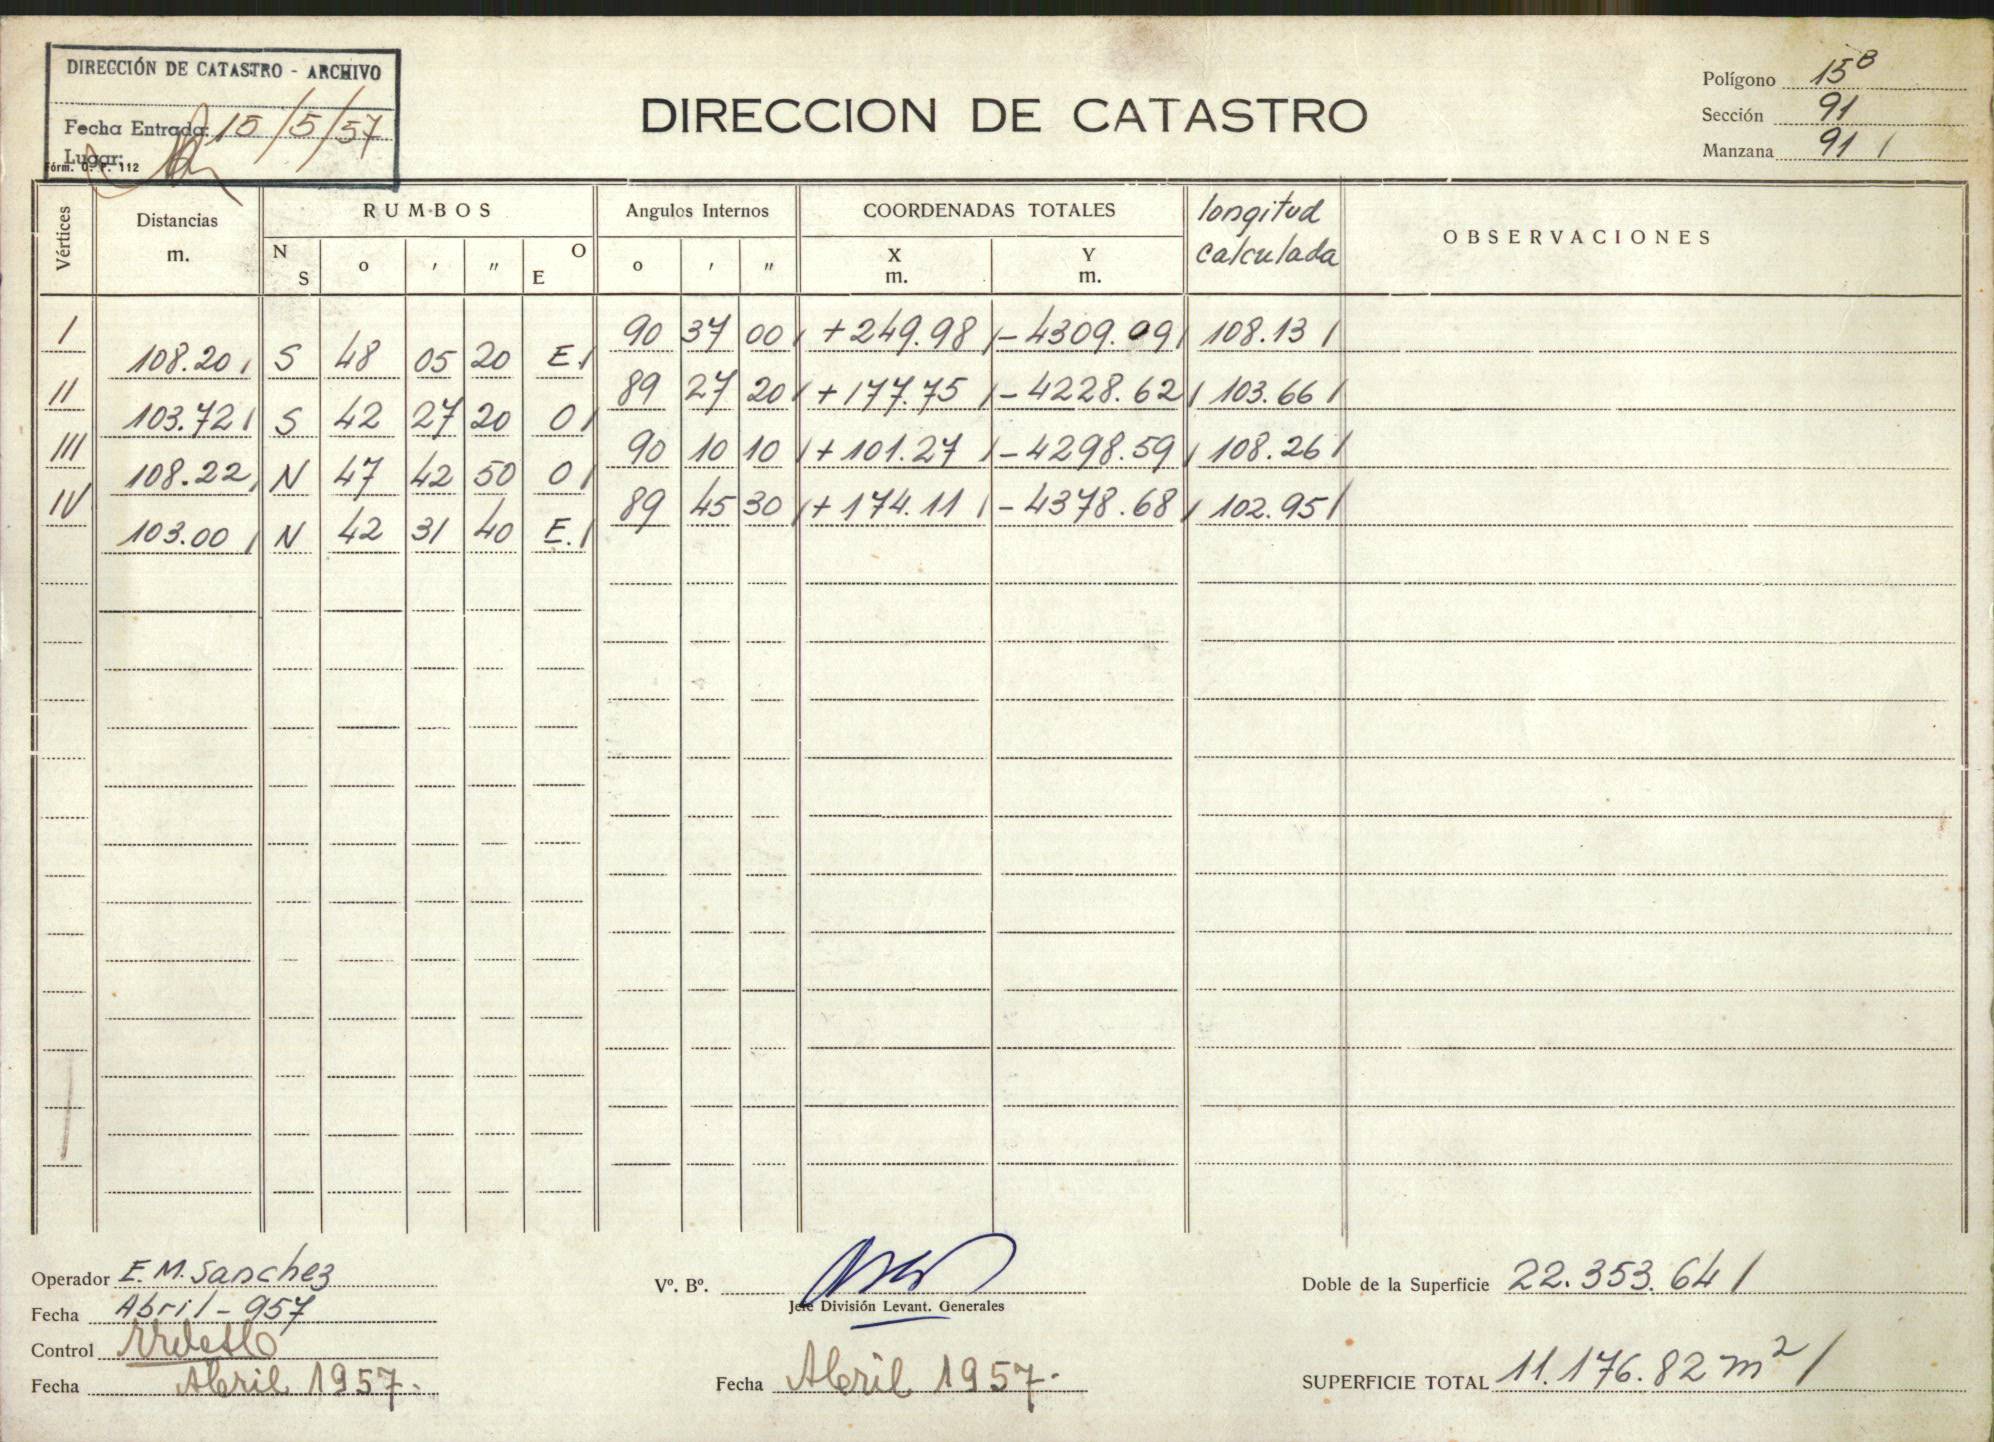 DIRECCIÓN DE CATASTRO - ARCHIVO
Fecha Entrada: 15/5/57
Lugar:
Fórm. O. P. 112
DIRECCION DE CATASTRO
Polígono 15B
Sección 91
Manzana 91 /
Vértices Distancias m. RUMBOS Angulos Internos COORDENADAS TOTALES longitud calculada OBSERVACIONES
N S o ' " E O o ' " X m. Y m.
I 90 37 00 / +249.98 / -4309.09 / 108.13 /
108.20 / S 48 05 20 E. /
II 89 27 20 / +177.75 / -4228.62 / 103.66 /
103.72 / S 42 27 20 O /
III 90 10 10 / +101.27 / -4298.59 / 108.26 /
108.22 / N 47 42 50 O /
IV 89 45 30 / +174.11 / -4378.68 / 102.95 /
103.00 / N 42 31 40 E. /
Operador E. M. Sanchez
Fecha Abril - 957
Control
Fecha Abril 1957.
Vº. Bº.
Jefe División Levant. Generales
Fecha Abril 1957.
Doble de la Superficie 22.353.64 /
SUPERFICIE TOTAL 11.176.82 m2 /